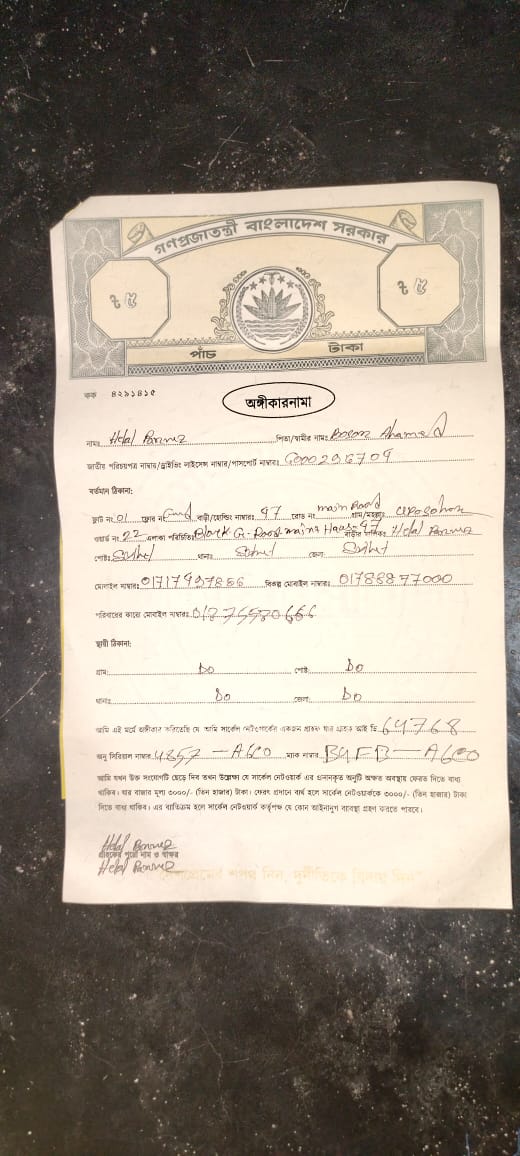 গণপ্রজাতন্ত্রী বাংলাদেশ সরকার
৳ ৫ ৳ ৫
পাঁচ টাকা
কক ৪২৯১৪১৫
অঙ্গীকারনামা
নামঃ Helal পিতা/স্বামীর নামঃ Ahamed
জাতীয় পরিচয়পত্র নাম্বার/ড্রাইভিং লাইসেন্স নাম্বার/পাসপোর্ট নাম্বারঃ
বর্তমান ঠিকানা:
ফ্লাট নং 01 ফ্লোর নং বাড়ী/হোল্ডিং নাম্বারঃ 97 রোড নং main Road গ্রাম/মহল্লাঃ
ওয়ার্ড নং 22 এলাকা পরিচিতিঃ Block G- Road main Helal
পোষ্টঃ Sylhet থানাঃ Sylhet জেলাঃ Sylhet
মোবাইল নাম্বারঃ বিকল্প মোবাইল নাম্বারঃ 01788877000
পরিবারের কারো মোবাইল নাম্বারঃ
স্থায়ী ঠিকানা:
গ্রাম: Do পোষ্ট: Do
থানাঃ Do জেলাঃ Do
আমি এই মর্মে অঙ্গীকার করিতেছি যে আমি সার্কেল নেটওয়ার্কের একজন গ্রাহক যার গ্রাহক আই ডি 64768
অনু সিরিয়াল নাম্বার 4857 — A6C0 ম্যাক নাম্বার B4FB — A6C0
আমি যখন উক্ত সংযোগটি ছেড়ে দিব তখন উল্লেখ্য যে সার্কেল নেটওয়ার্ক এর প্রদানকৃত অনুটি অক্ষত অবস্থায় ফেরত দিতে বাধ্য
থাকিব। যার বাজার মূল্য ৩০০০/- (তিন হাজার) টাকা। ফেরৎ প্রদানে ব্যর্থ হলে সার্কেল নেটওয়ার্ককে ৩০০০/- (তিন হাজার) টাকা
দিতে বাধ্য থাকিব। এর ব্যতিক্রম হলে সার্কেল নেটওয়ার্ক কর্তৃপক্ষ যে কোন আইনানুগ ব্যবস্থা গ্রহণ করতে পারবে।
Helal
গ্রাহকের পুরো নাম ও স্বাক্ষর
Helal
দেশপ্রেমের শপথ নিন, দুর্নীতিকে বিদায় দিন